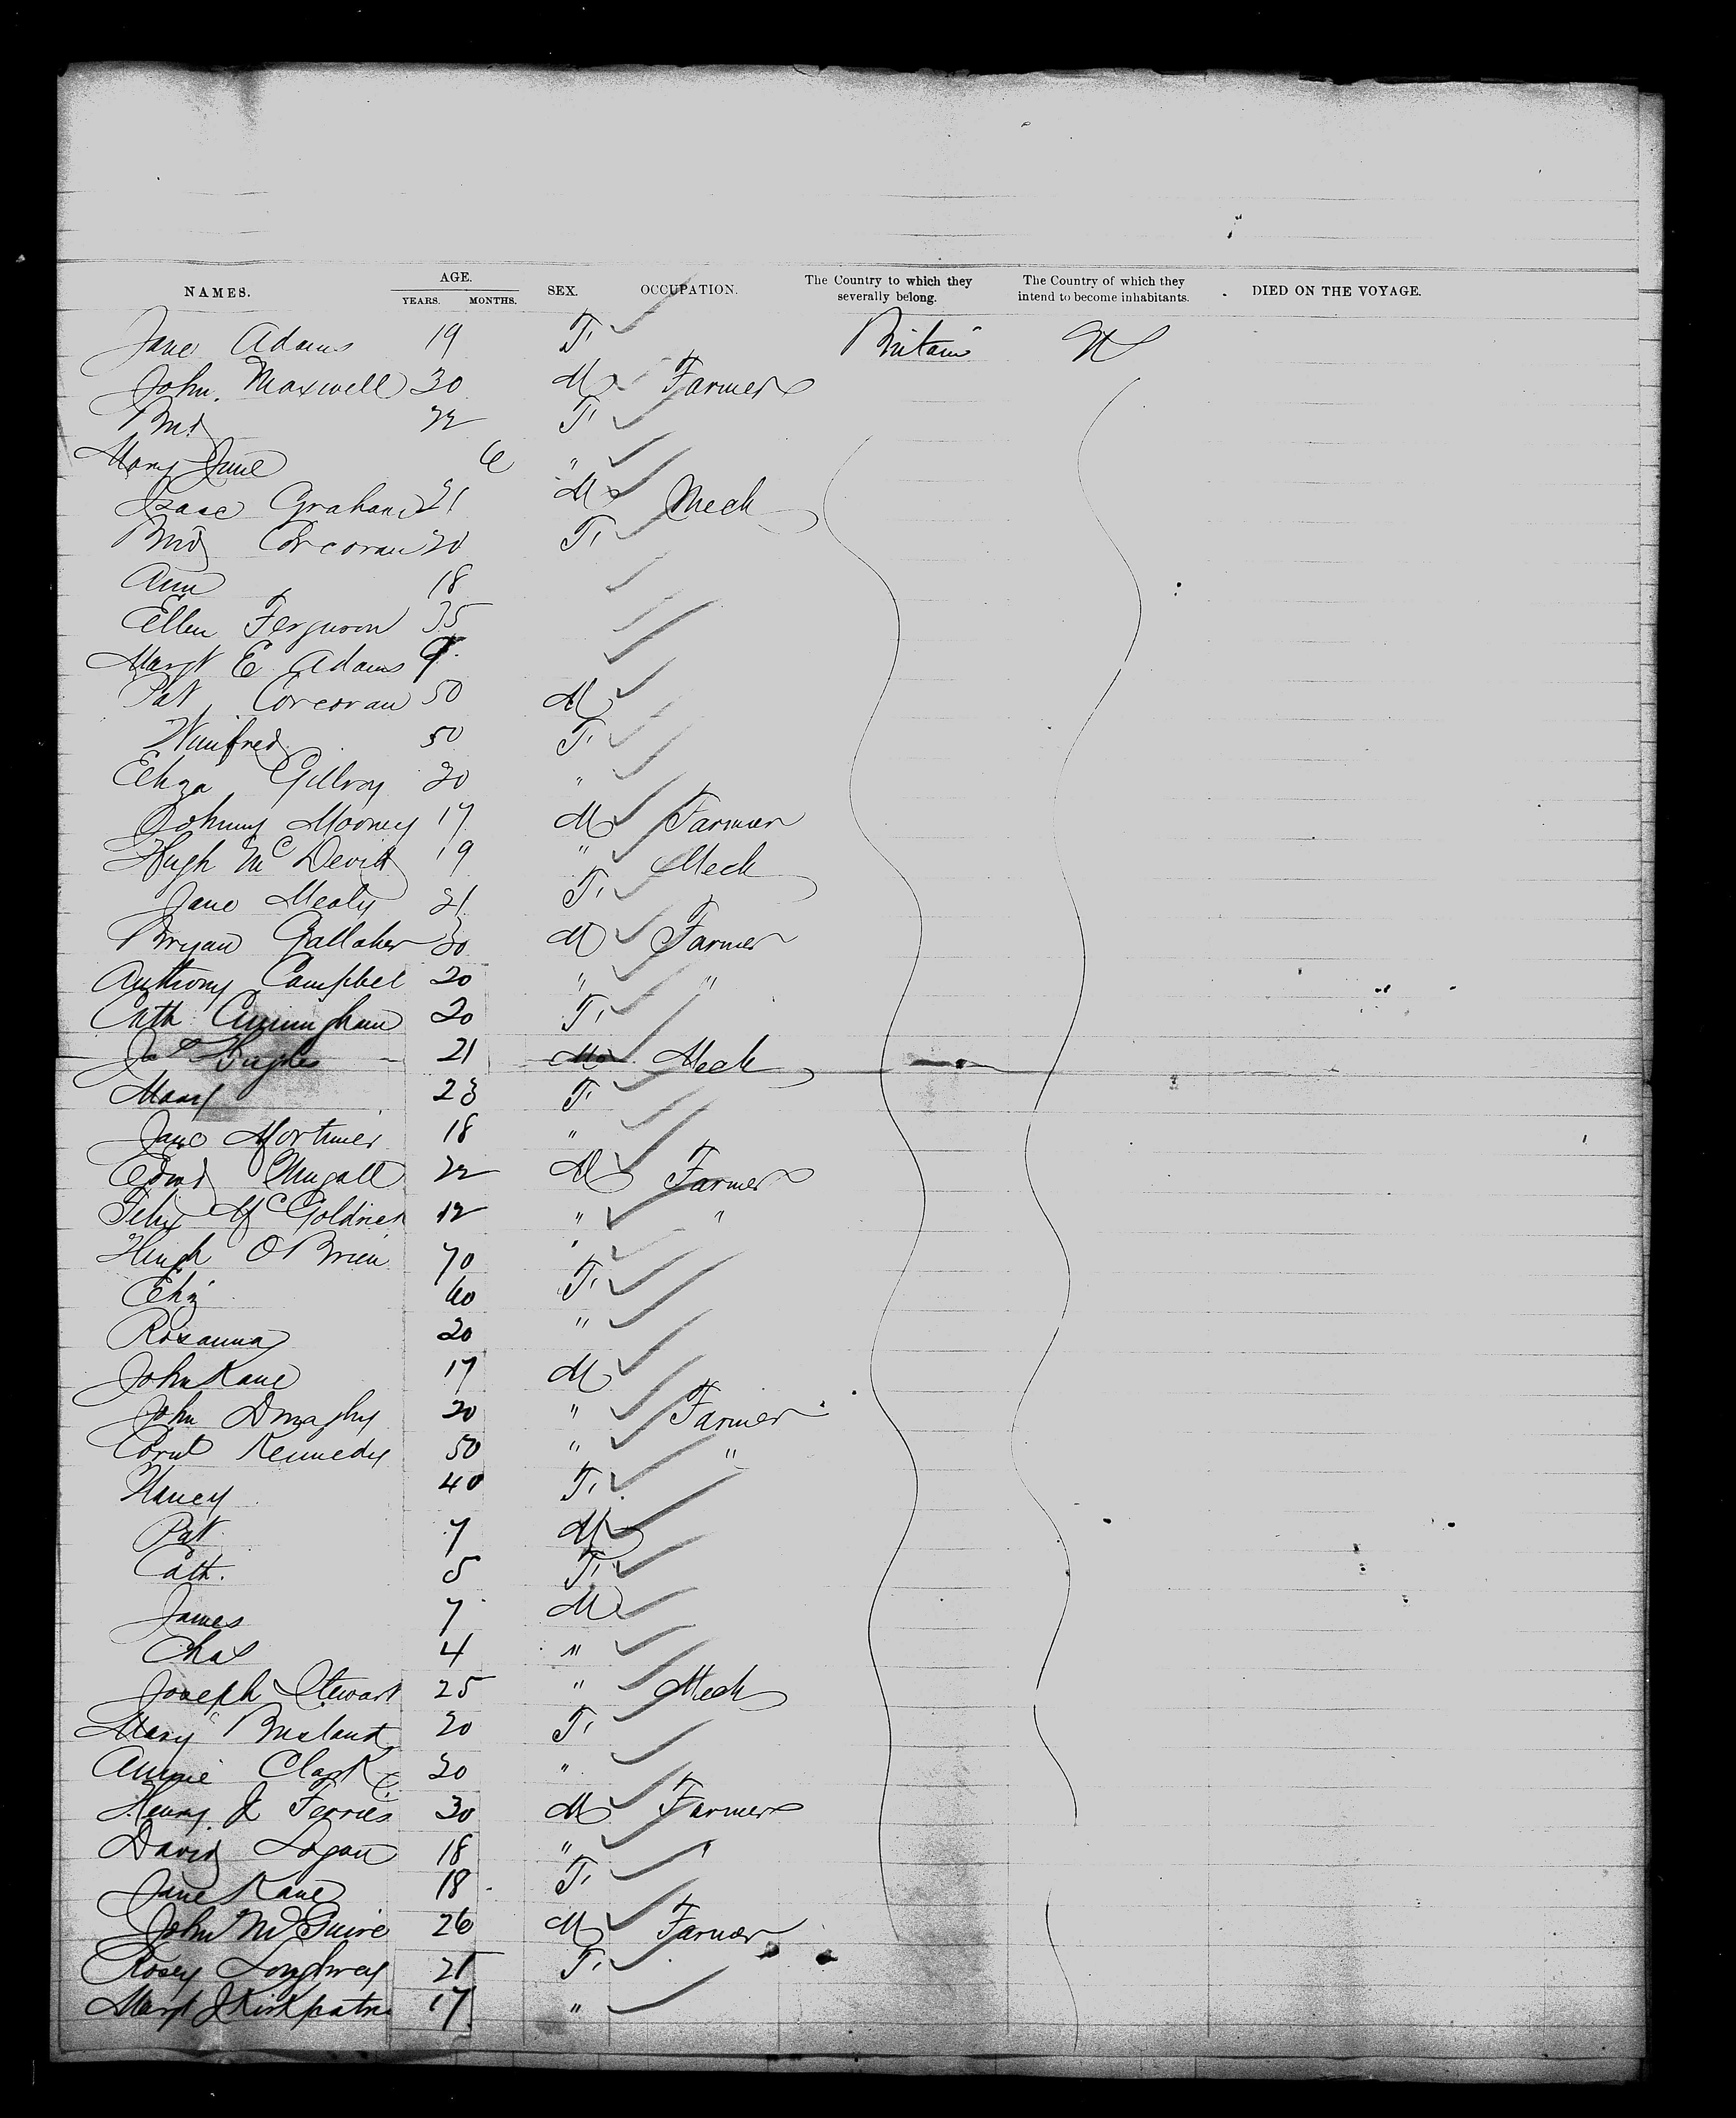 NAMES. AGE. YEARS. MONTHS. SEX. OCCUPATION. The Country to which they severally belong. The Country of which they intend to become inhabitants. DIED ON THE VOYAGE.
Jane Adams 19 F Britain US
John Maxwell 30 M Farmer
Brid 22 F
Mary Jane 6 "
Isaac Graham 21 M Mech
Brid Corcoran 20 F
Ann 18
Ellen Ferguson 35
Margt E Adams 9
Pat Corcoran 50 M
Winifred 50 F
Eliza Gillroy 20 "
Johnny Mooney 17 M Farmer
Hugh McDevitt 19 " Mech
Jane Mealy 21 F
Bryan Gallaher 30 M Farmer
Anthony Campbel 20 " "
Cath Cunningham 20 F
Jas Hughes 21 M Mech
Mary 23 F
Jane Mortimer 18 "
Edwd 22 M Farmer
Felix McGoldrick 12 " "
Hugh O'Brien 70 "
Eliz 60 F
Rosanna 20 "
John Kane 17 M
John Donaghy 20 " Farmer
Kennedy 50 " "
Nancy 40 F
Pat 7 M
Cath. 5 F
James 7 M
Chas 4 "
Joseph Stewart 25 " Mech
Mary 20 F
Annie Clark 20 "
Henry J Ferries 30 M Farmer
David Logan 18 " "
Jane Kane 18 F
John McGuire 26 M Farmer
Rosey Longhrey 21 F
Margt J Kirkpatric 17 "